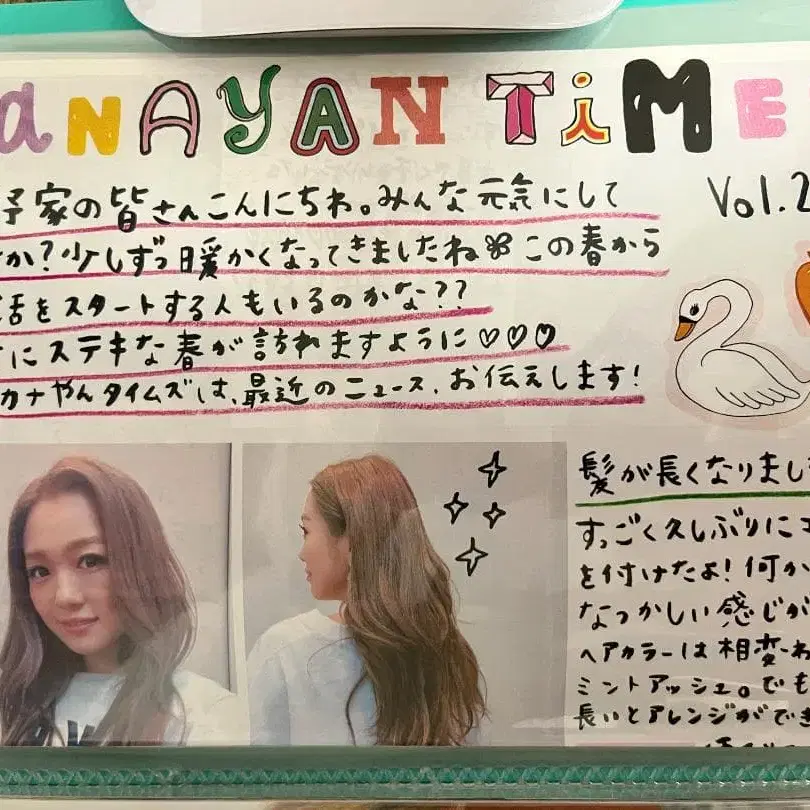 aNAYAN TiME
Vol.2
家の皆さんこんにちわ。みんな元気にして
か?少しずつ暖かくなってきましたね この春から
活をスタートする人もいるのかな??
にステキな春が訪れますように♡♡♡
カナやんタイムズは、最近のニュース、お伝えします!
髪が長くなりまし
すっごく久しぶりにエ
を付けたよ!何か
なつかしい感じが
ヘアカラーは相変わ
ミントアッシュ。でも
長いとアレンジができ